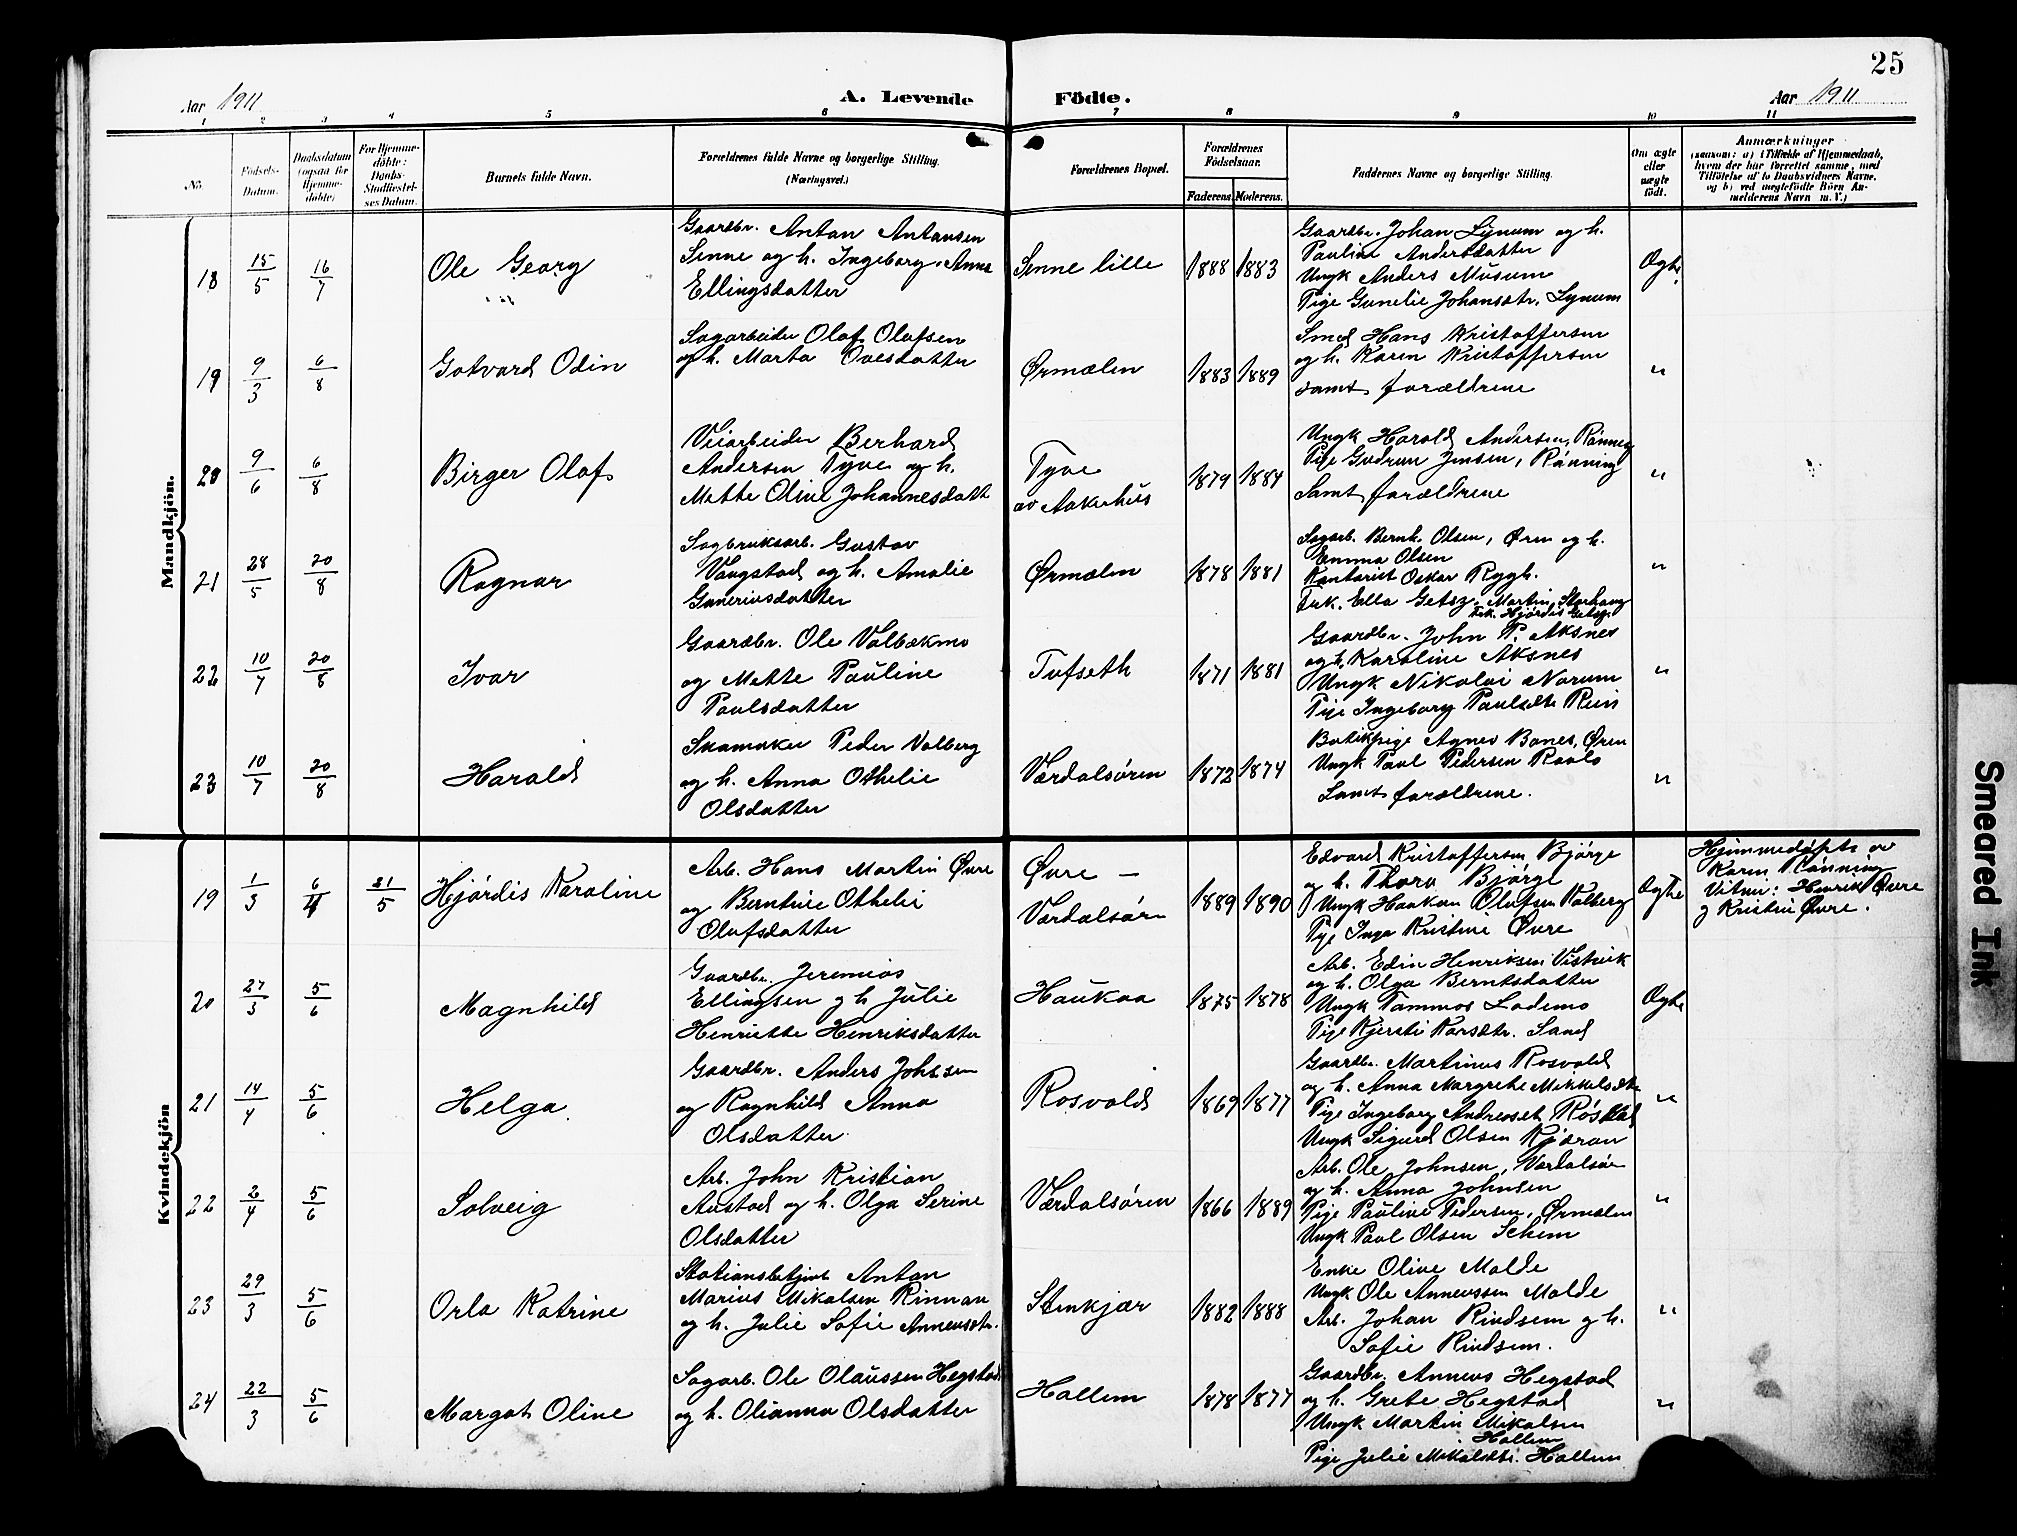 25
Aar 1911
A. Levende Födte.
Aar 1911
1 2 3 4 5 6 7 8 9 10 11
No.
Födsels-
Datum.
Daabsdatum
(ogsaa for
Hjemme-
döbte)
For Hjemme-
döbte:
Daabs-
Stadfæstel-
ses Datum.
Barnets fulde Navn.
Forældrenes fulde Navne og borgerlige Stilling.
(Næringsvei.)
Forældrenes Bopæl.
Forældrenes
Födselsaar.
Faderens. Moderens.
Faddernes Navne og borgerlige Stilling.
Om ægte
eller
uægte
födt.
Anmærkninger
(saasom: a) i Tilfælde af Hjemmedaab,
hvem der har forrettet samme, med
Tilföielse af to Daabsvidners Navne,
og b) ved uægtefödte Börn An-
melderens Navn m. V.)
Mandkjön.
18
15/5
16/7
Ole Georg
Gaardbr. Anton Antonsen
Senne og h. Ingeborg Anna
Ellingsdatter
Senne lille
1888 1883
Gaardbr. Johan Lynum og h.
Pauline Andersdatter
Ungk Anders Musum
Pige Gunelie Johansdtr. Lynum
Ægte
19
9/3
6/8
Gotvard Odin
Sagarbeider Olaf Olafsen
og h. Marta Ovesdatter
Ørmælen
1883 1889
Smed Hans Kristoffersen
og h. Karen Kristoffersen
samt forældrene
"
20
9/6
6/8
Birger Olaf
Veiarbeider Berhard
Andersen Tyve og h.
Mette Olive Johannesdatt
Tyve
av Aakerhus
1879 1884
Ungk Harald Andersen, Rønning
Pige Gudrun Jensen, Rønning
Samt forældrene
"
21
28/5
20/8
Ragnar
Sagbruksarb. Gustav
Vangstad og h. Amalie
Guneriusdatter
Ørmælen
1878 1881
Sagarb. Bernh. Olsen, Øren og h.
Emma Olsen
Kontorist Oskar Rygh.
Frk. Ella Getsz. Martin Storhaug
Frk. Hjørdis Getsz.
"
22
10/7
20/8
Ivar
Gaardbr. Ole Valbækmo
og Mette Pauline
Paulsdatter
Tufseth
1871 1881
Gaardbr. John P. Aksnes
og h. Karoline Aksnes
Ungk Nikolai Norum
Pige Ingeborg Paulsdtr Rein
"
23
10/7
20/8
Harald
Skomaker Peder Valberg
og h. Anna Othelie
Olsdatter
Værdalsøren
1872 1874
Butikpige Agnes Bones, Øren
Ungk Paul Pedersen
Samt forældrene.
"
Kvindekjön
19
1/3
6/4
21/5
Hjørdis Karoline
Arb. Hans Martin Øvre
og Berntine Othelie
Olufsdatter
Øvre —
Værdalsør
1889 1890
Edvard Kristoffersen Bjørge
og h. Thora Bjørge
Ungk Haakon Olufsen Valberg
Pige Inga Kristine Øvre
Ægte
Hjemmedøpt av
Karen Rønning
Vitner: Henrik Øvre
og Kristin Øvre.
20
27/3
5/6
Magnhild
Gaardbr. Jeremias
Ellingsen og h Julie
Henriette Henriksdatter
Haukaa
1875 1878
Arb. Edin Henriksen Vistvik
og h. Olga Berntsdatter
Ungk Tammos Lademo
Pige Kjersti Larsdtr. Sand
Ægte
21
14/4
5/6
Helga
Gaardbr. Anders Johnsen
og Ragnhild Anna
Olsdatter
Rosvold
1869 1877
Gaardbr. Martinus Rosvold
og h. Anna Margrete Mikkelsdtr
Pige Ingeborg Andreasdt. Røstad
Ungk Sigurd Olsen Kjæran
"
22
2/4
5/6
Solveig
Arb. John Kristian
Austad og h. Olga Serine
Olsdatter
Værdalsøren
1866 1889
Arb. Ole Johnsen, Værdalsør
og h. Anna Johnsen
Pige Pauline Pedersen, Ørmælen
Ungk Paul Olsen Schem
"
23
29/3
5/6
Orla Katrine
Stationsbetjent Anton
Marius Mikalsen Rinnan
og h. Julie Sofie Anneusdtr.
Stenkjær
1882 1888
Enke Olive Molde
Ungk Ole Anneussen Molde
Arb. Johan Rindsem og h.
Sofie Rindsem.
"
24
22/3
5/6
Margot Oline
Sagarb. Ole Olaussen Hegstad
og h. Olianna Olsdatter
Hallem
1878 1877
Gaardbr. Anneus Hegstad
og h. Grete Hegstad
Ungk Martin Mikalsen
Hallem
Pige Julie Mikalsdtr. Hallem
"
Smeared Ink